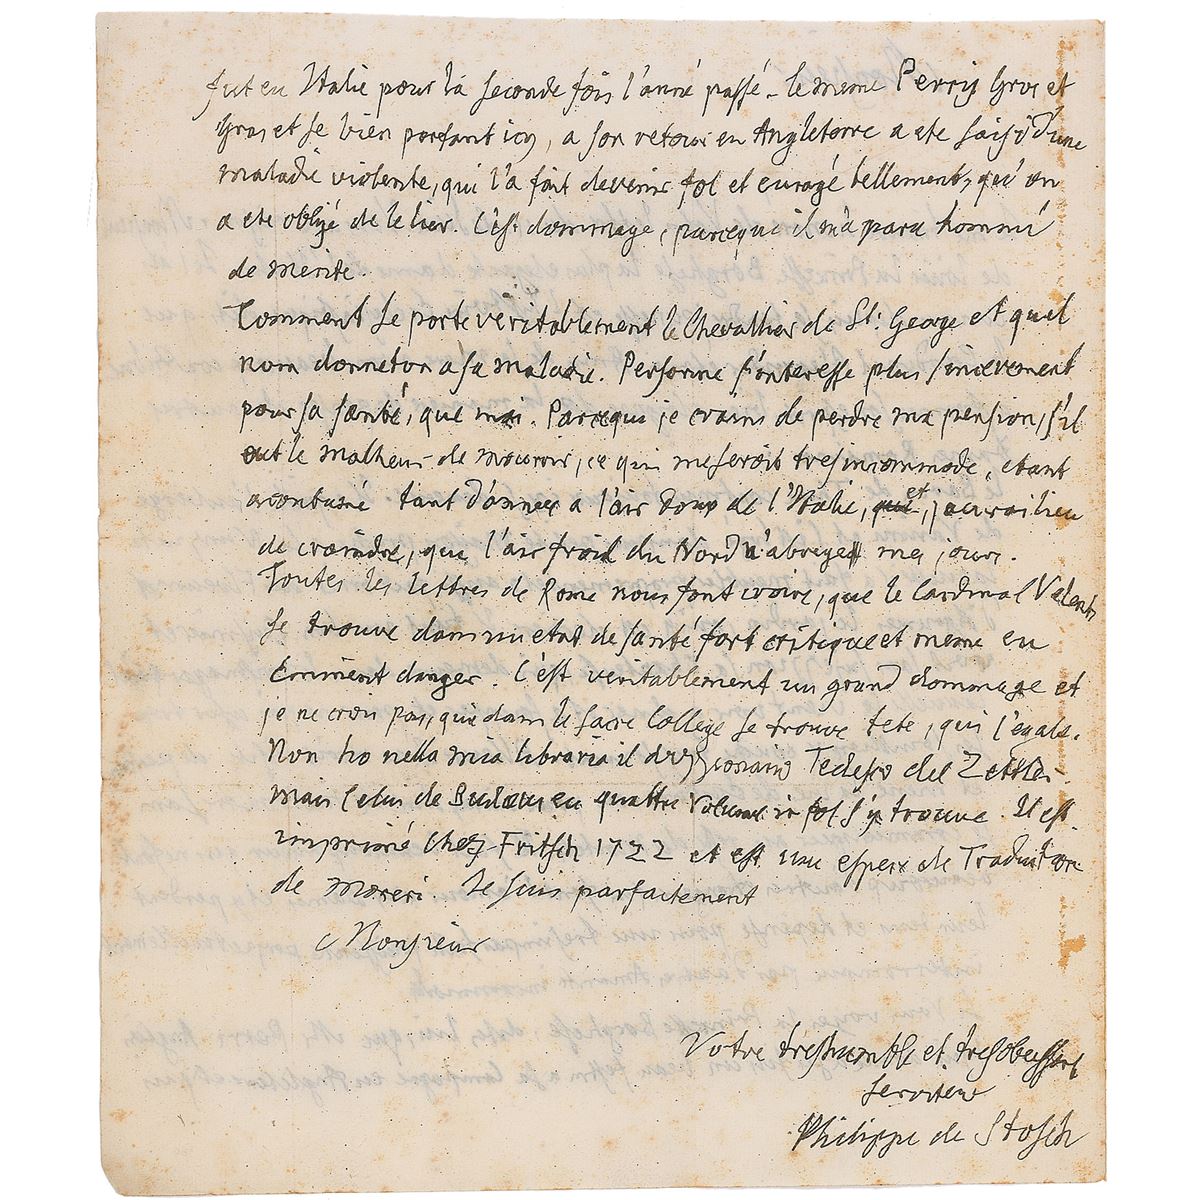 fut en Italie pour la seconde fois l'anné passé. le meme Perry Gros et
Gras et se bien portant icy, a son retour en Angleterre a ete saisy d'une
maladie violente, qui l'a fait devenir fol et euragé tellement, qu'on
a ete obligé de le lier. C'est dommage, parcequ'il m'a paru hommé
de merite.
Comment se porte veritablement le Chevallier de St: George et quel
nom donneton a sa maladie. Personne s'interesse plus sincerement
pour sa santé, que moi. Parcequi je crains de perdre ma pension, s'il
eut le malheur de mourir, ce qui me seroit tres incommode, etant
acoutumé tant d'annes a l'air doux de l'Italie, que et, j'aurai lieu
de craindre, que l'air froid du Nord n'abrege mes jours.
Toutes les lettres de Rome nous font croire, que le Cardinal Valenti
se trouve dans un etat de santé fort critique et meme en
Eminent danger. C'est veritablement un grand dommage et
je ne crois pas, que dans le sacre College se trouve tete, qui l'egale.
Non ho nella mia libraria il dizzionario Tedesco del Zettler
mais Celui de Budæus en quattre Volumes in fol s'y trouve. Il est
imprimé Chez Fritsch 1722 et est une espece de Traduction
de Moreri. Je suis parfaitement
Monsieur
Votre treshumble et tresobeissant
Serviteur
Philippe de Stosch